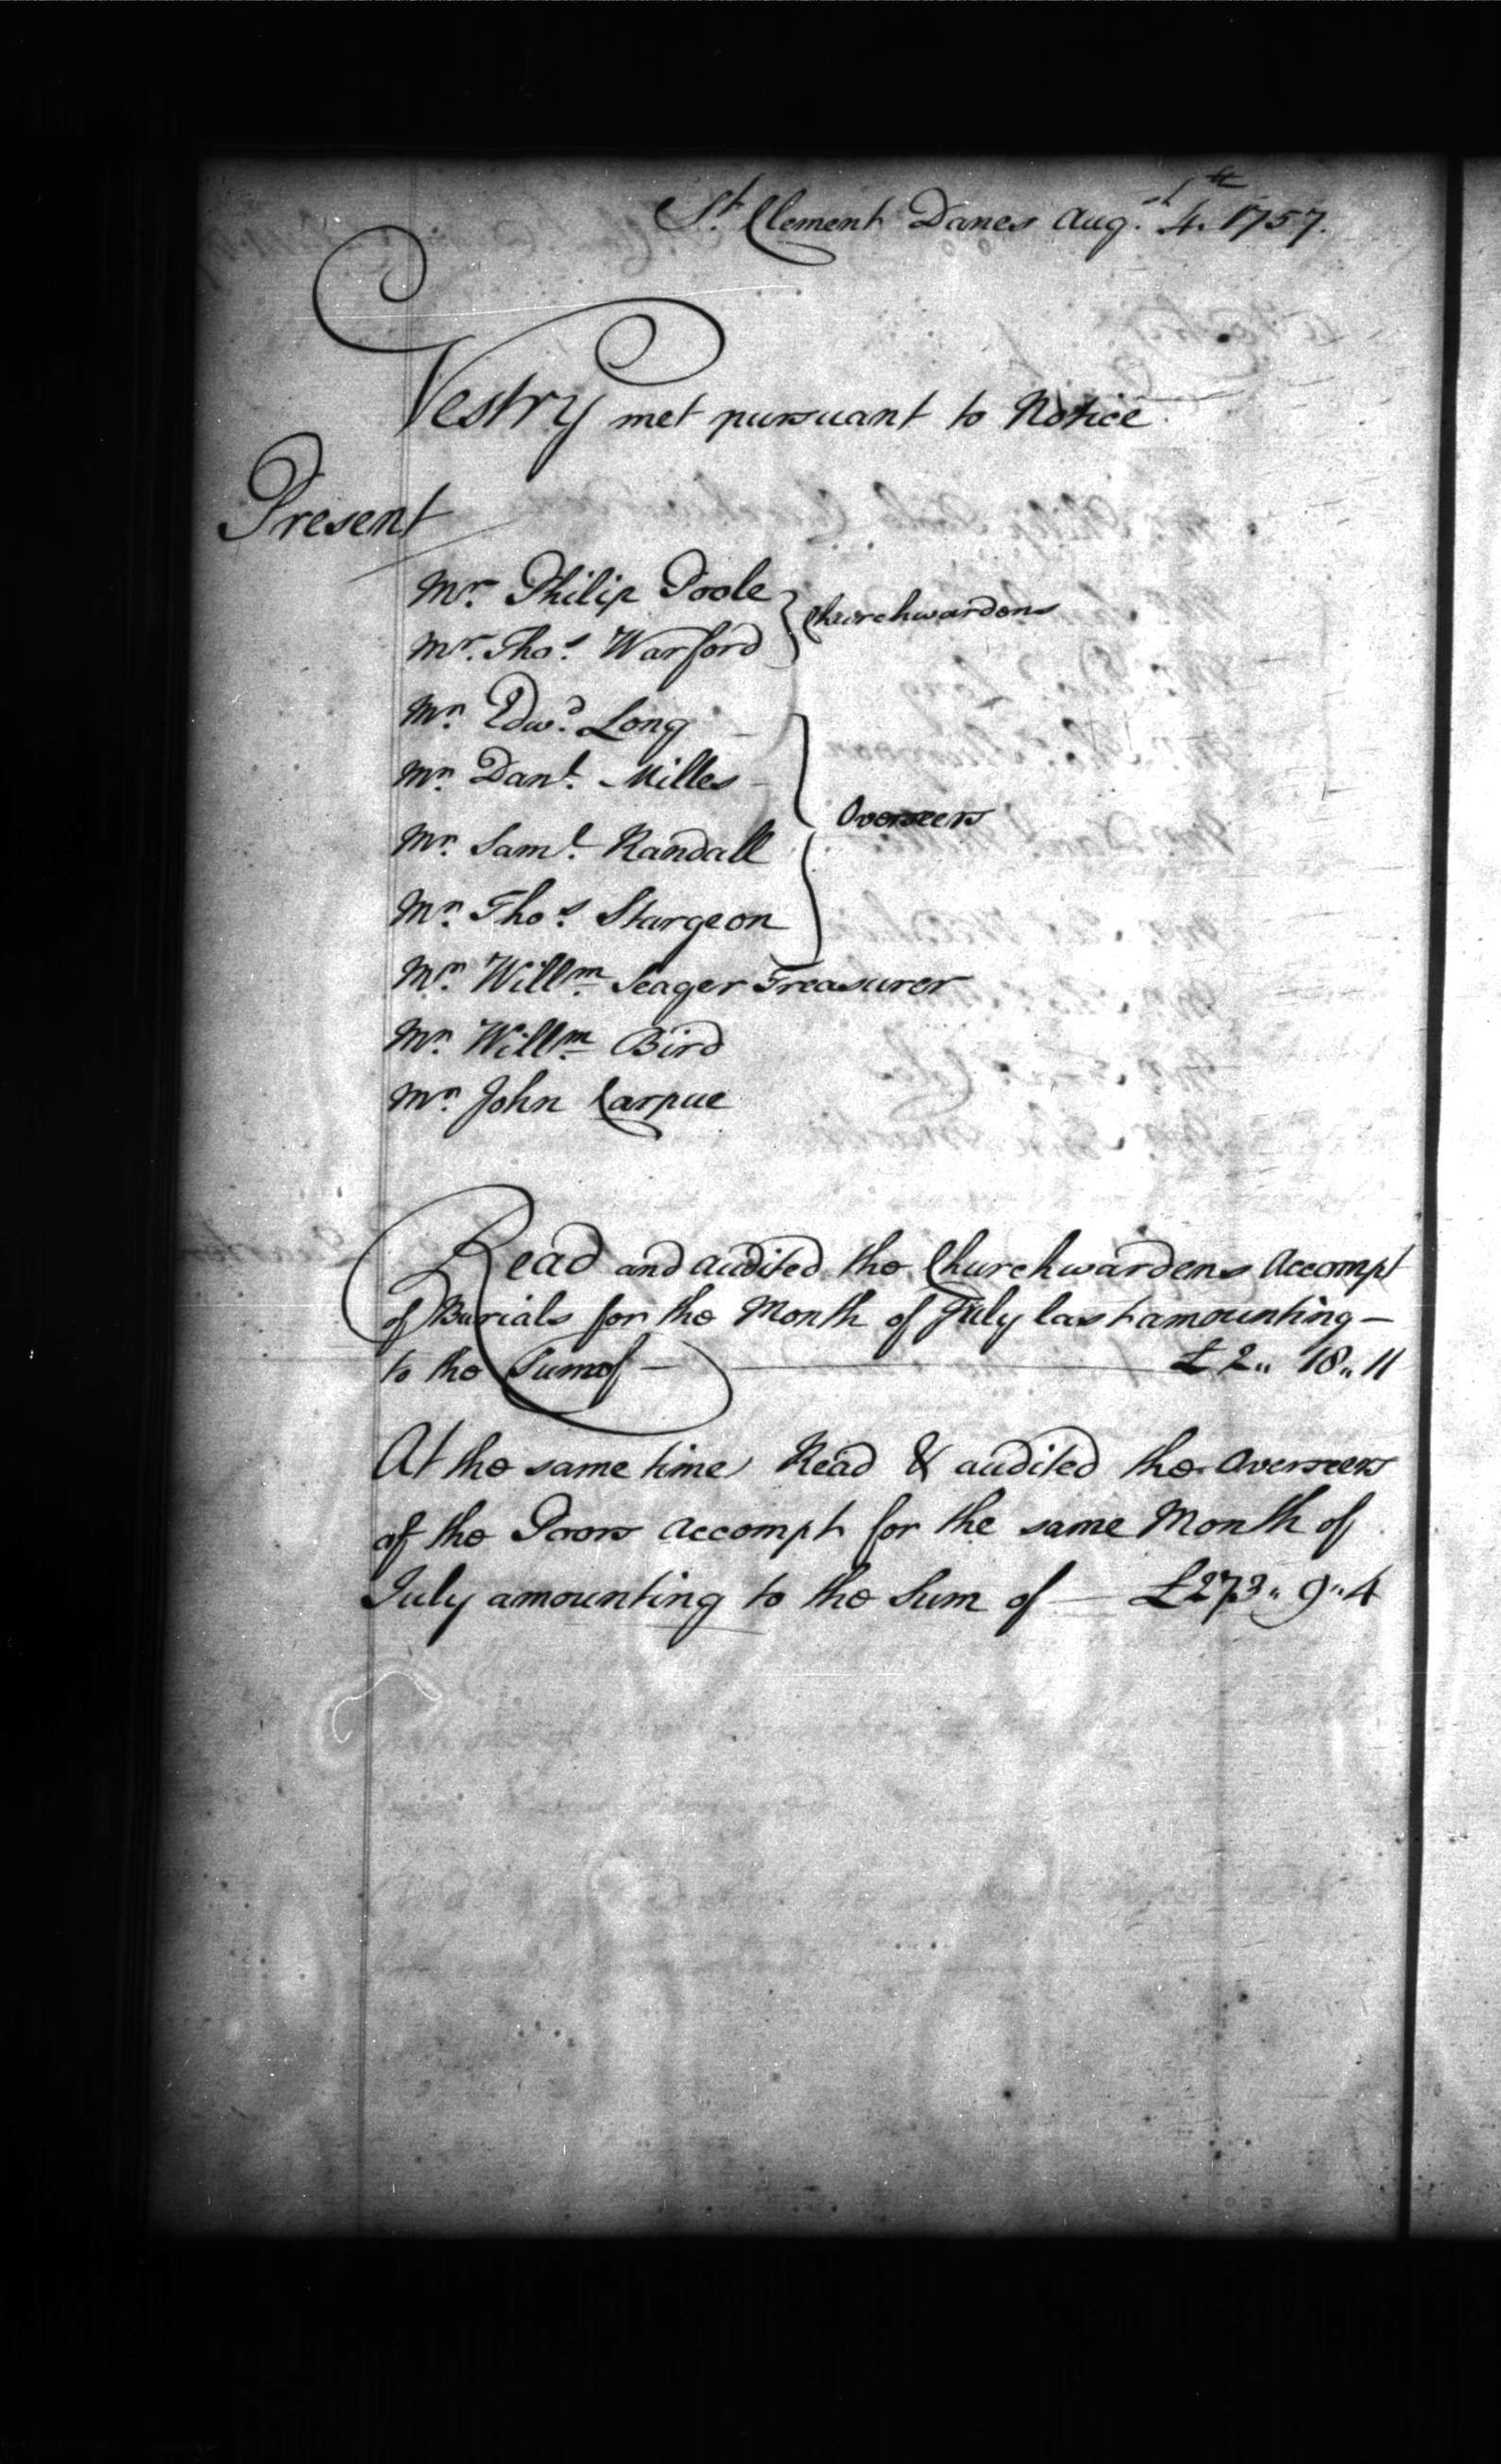 St. Clement Danes Augst. 4th. 1757.
Vestry met pursuant to Notice
Present
Mr. Philip Poole
Mr. Thos. Warford
Churchwardens
Mr. Edwd. Long
Mr. Danl. Milles
Mr. Saml. Randall
Mr. Thos. Sturgeon
Overseers
Mr. Willm. Seager Treasurer
Mr. Willm. Bird
Mr. John Carpue
Read and audited the Churchwardens Accompt
of Burials for the Month of July last amounting —
to the Sum of — £2„ 18„ 11
At the same time Read & audited the Overseers
of the Poors Accompt for the same Month of
July amounting to the Sum of — £273„ 9„ 4